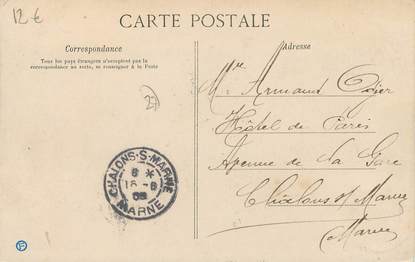 12 €
CARTE POSTALE
Correspondance
Tous les pays étrangers n'acceptent pas la
correspondance au recto, se renseigner à la Poste
Adresse
27
Mr Armand
Hôtel de Paris
Avenue de la Gare
Châlons s/ Marne
Marne
CHALONS-S-MARNE
MARNE